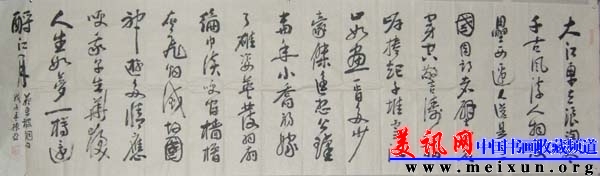 大江東去浪淘盡
千古風流人物故
壘西邊人道是
國周郎赤壁
穿空驚濤
岸捲起千堆雪
如畫一時多少
豪傑遙想公瑾
當年小喬初嫁
了雄姿英發羽扇
綸巾談笑間檣櫓
灰飛煙滅故國
神遊多情應
笑我早生華髮
人生如夢一樽還
酹江月
美讯网 中国书画收藏频道
www.meixun.org